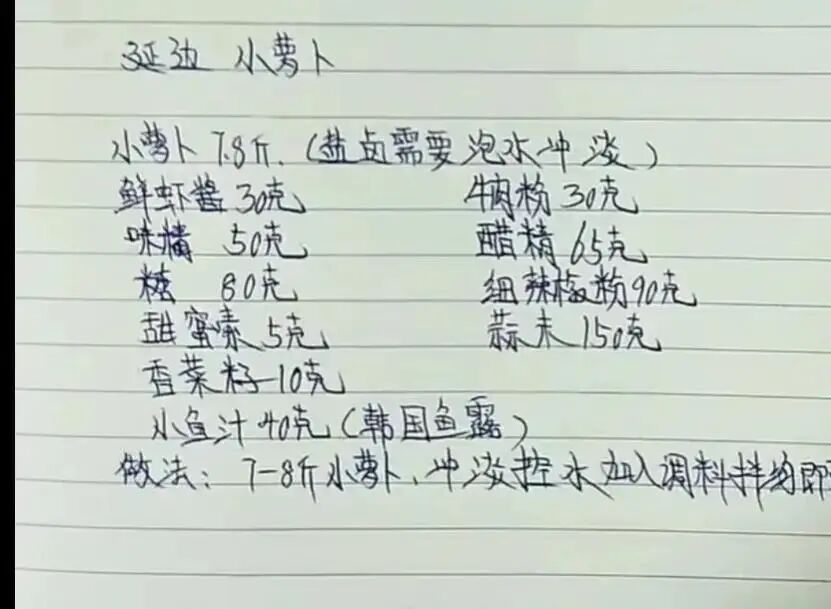 延边 小萝卜
小萝卜 7.8斤.(盐卤需要泡水冲淡)
鲜虾酱 30克 牛肉粉 30克
味精 50克 醋精 65克
糖 80克 细辣椒粉 90克
甜蜜素 5克 蒜末 150克
香菜籽 10克
小鱼汁 40克(韩国鱼露)
做法: 7-8斤小萝卜.冲淡控水加入调料拌均即